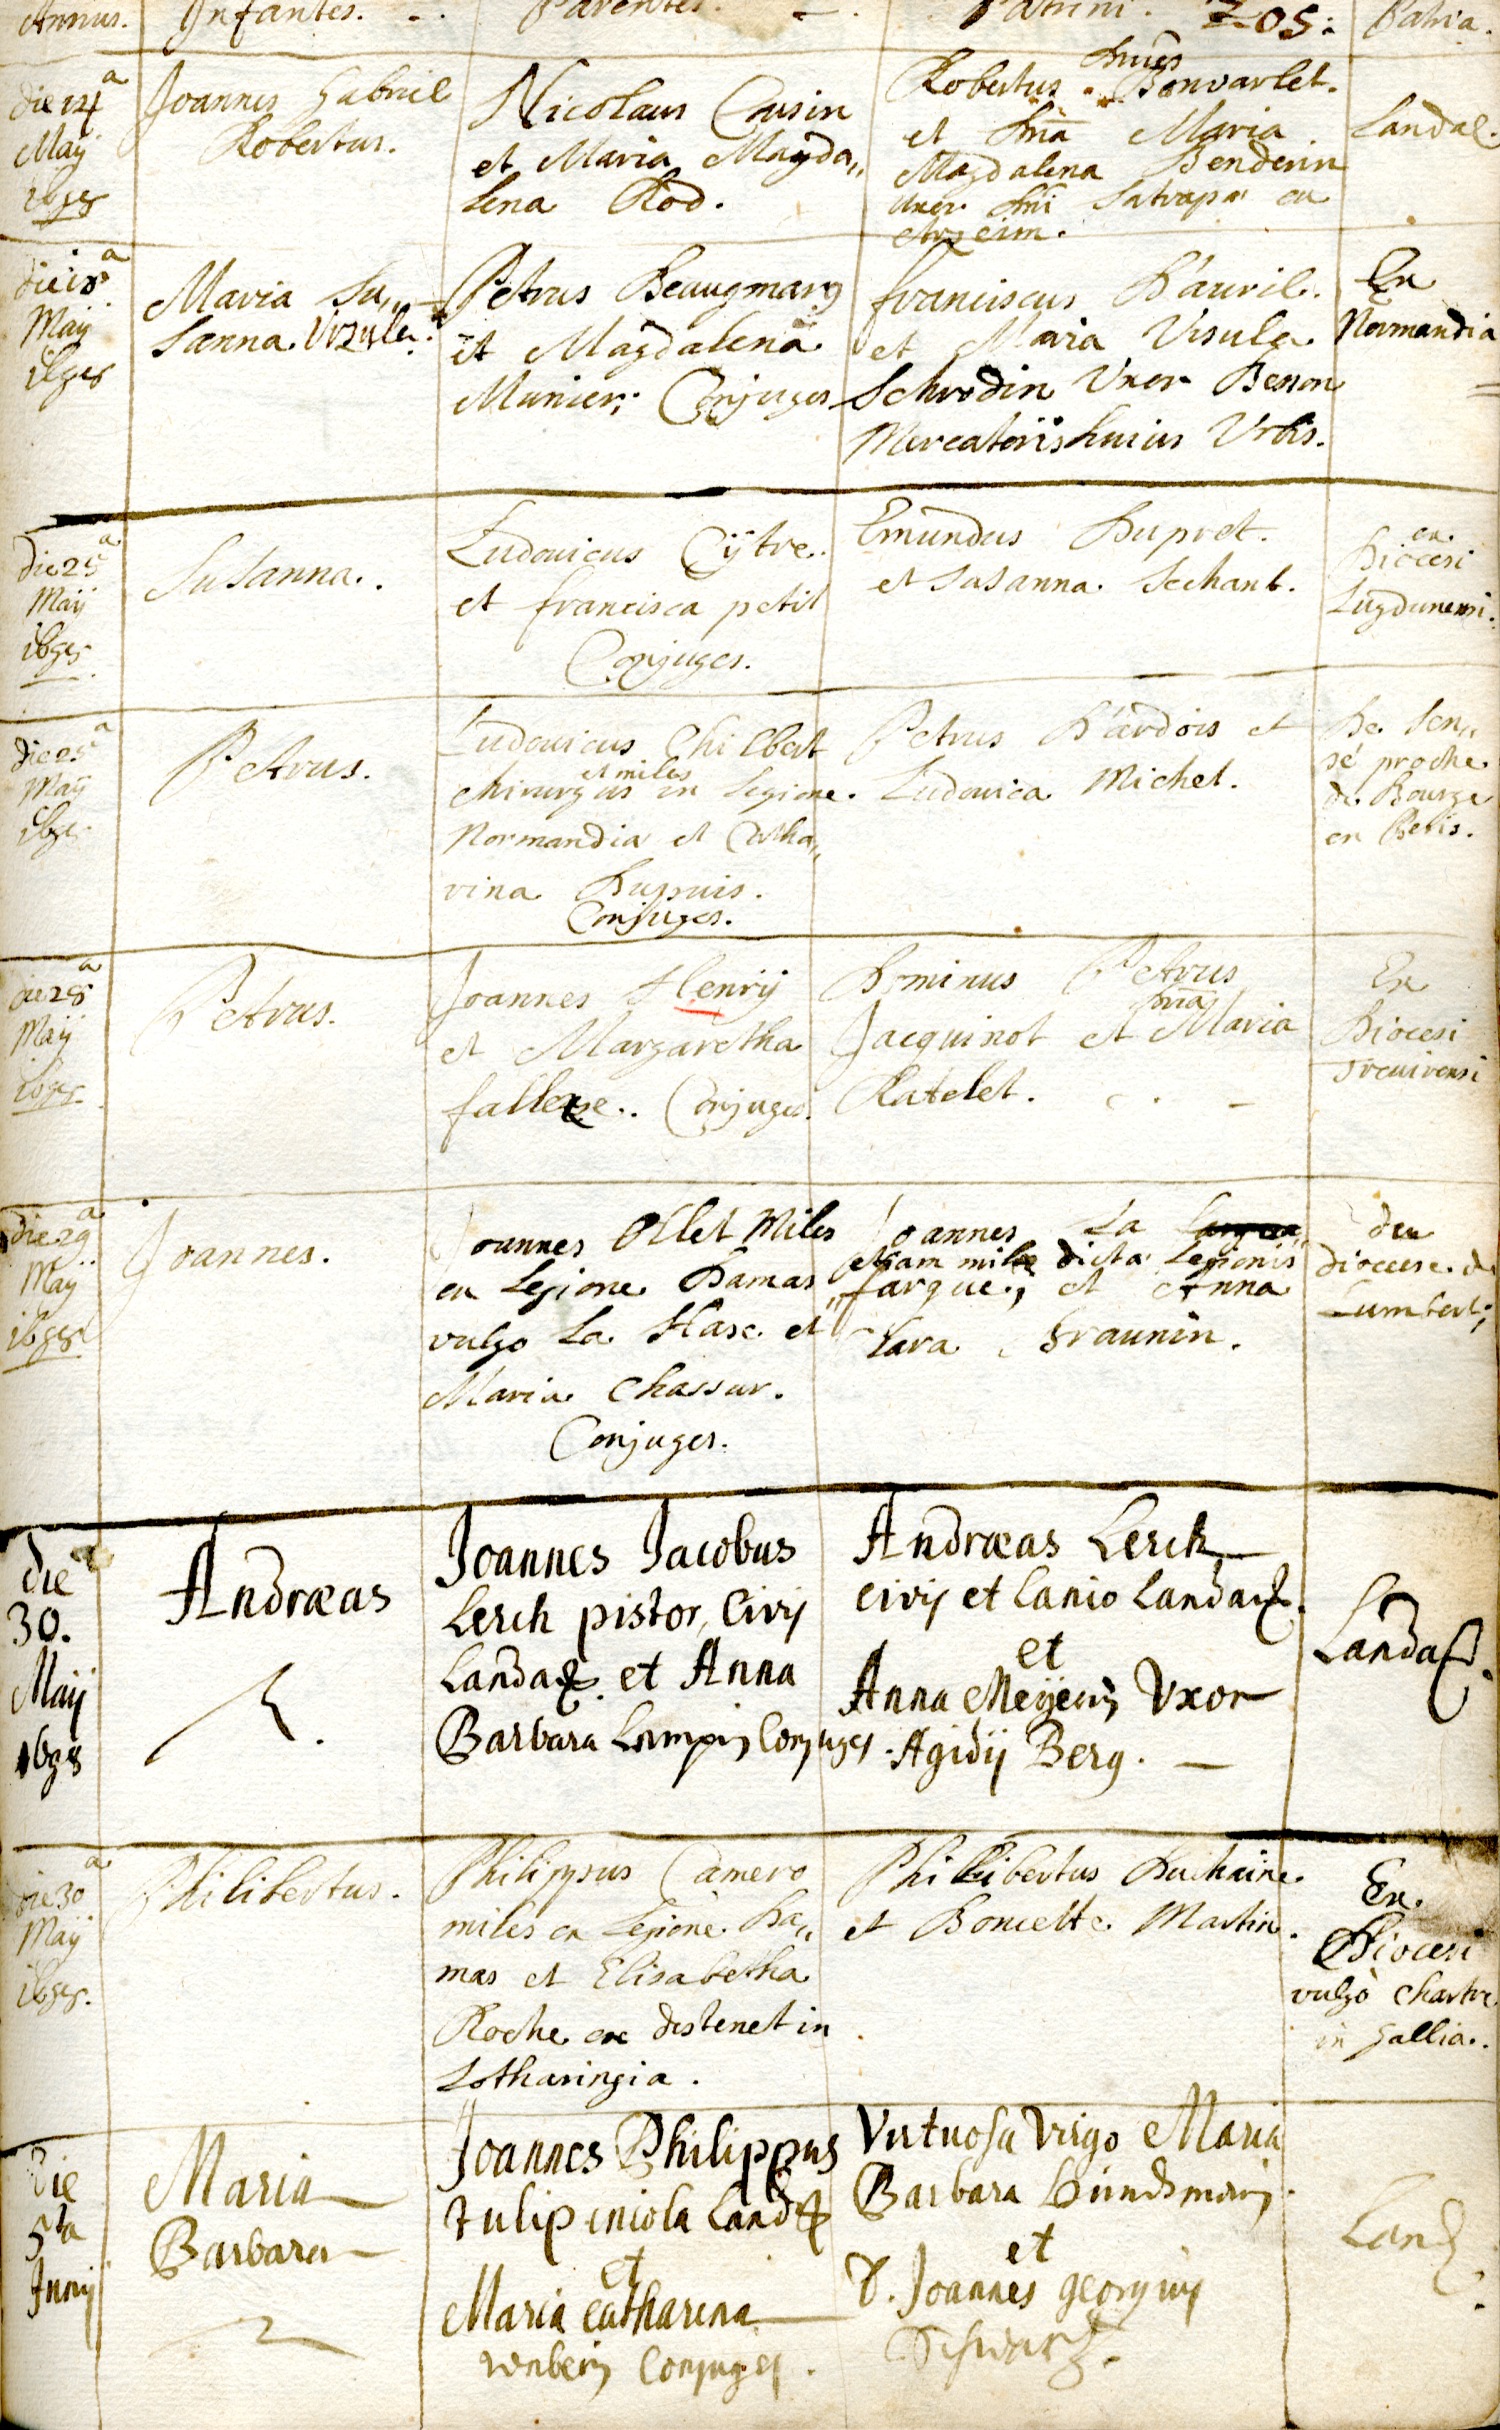 Annus. Infantes. Parentes. Patrini. 205. Patria.
die 14a
May
1698
Joannes Gabriel
Robertus.
Nicolaus Cusin
et Maria Magda„
lena Rod.
Robertus Bonvarlet.
et Dña Maria
Magdalena Benderin
uxor Dñi Satrapæ ex
Landal.
die 18a
May
1698
Maria Su„
sanna. Vrzula.
Petrus Beaugmang
et Magdalena
Munier; Conjuges
franciscus D'auril.
et Maria Vrsula
Schrodin Vxor Besson
Mercatoris huius Vrbis.
Ex
Normandia
die 25a
Maij
1698
Susanna.
Ludouicus Cijtre.
et francisca petit
Conjuges.
Emundus Dupret.
et Susanna Sechant.
ex
Diocesi
Lugdunensi.
die 25a
Maij
1698
Petrus.
Ludouicus Chilbert
et miles
chirurgus in Legione.
Normandia et Catha„
rina Dupuis.
Conjuges.
Petrus D'ardois et
Ludouica Michel.
De Sen„
sé proche
de Bourge
en Beris.
die 28a
Maij
1698
Petrus.
Joannes Henrij
et Margaretha
Conjuges.
Dominus Petrus
Jacquinot et Dña Maria
Ratelet.
Ex
Diocesi
Treuirensi
die 29a
May
1698
Joannes.
Joannes Ollet Miles
ex Legione Damas
vulgo La Hase et
Maria Chassur.
Conjuges.
Joannes La
etiam miles dicta Legionis
farque; et Anna
Clara Braunin.
du
diocese de
Lumbert;
die
30.
Maij
1698
Andræas
Joannes Jacobus
Lerch pistor, Civis
Landaq. et Anna
Barbara Lampin Conjuges
Andræas Lerch
civis et Lanio Landaq.
et
Anna Meijerin Vxor
Agidij Berg.
Landaq.
die 30a
May
1698.
Philibertus.
Philippus Camero
miles ex Legione Da„
mas et Elisabetha
Roche ex destenet in
Lotharingia.
Philibertus Duchaine.
et Boncette Martin.
Ex
Diocesi
vulgò chartre
in Gallia.
Die
5ta
Junij
Maria
Barbara
Joannes Philippus
Tulip incola Land
et
Maria Catharina
Conjuges.
Virtuosa Virgo Maria
Barbara Hindsmarin
et
D. Joannes Georgius
Schwartz.
Land